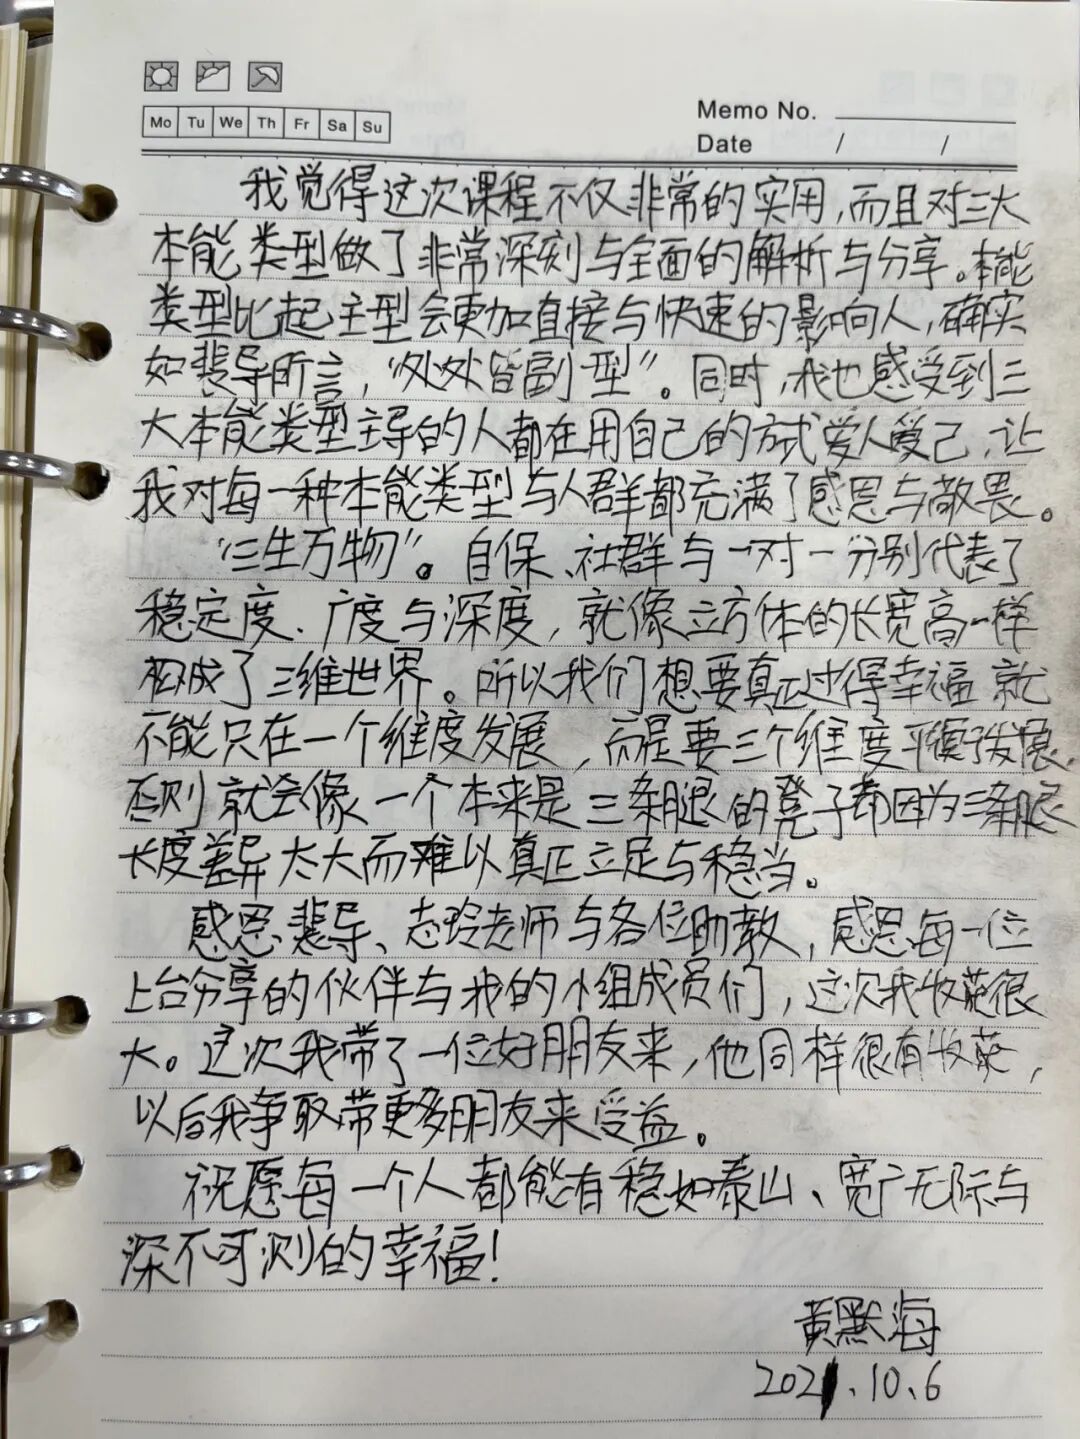 Mo Tu We Th Fr Sa Su
Memo No.
Date / /
我觉得这次课程不仅非常的实用,而且对三大
本能类型做了非常深刻与全面的解析与分享。本能
类型比起主型会更加直接与快速的影响人,确实
如裴导所言,“处处皆副型”。同时,我也感受到三
大本能类型主导的人都在用自己的方式爱人爱己,让
我对每一种本能类型与人群都充满了感恩与敬畏。
“三生万物”。自保、社群与一对一分别代表了
稳定度、广度与深度,就像立方体的长宽高一样
构成了三维世界。所以我们想要真正过得幸福 就
不能只在一个维度发展,而是要三个维度平衡发展,
否则就会像一个本来是三条腿的凳子却因为三条腿
长度差异太大而难以真正立足与稳当。
感恩裴导、志玲老师与各位助教,感恩每一位
上台分享的伙伴与我的小组成员们,这次我收获很
大。这次我带了一位好朋友来,他同样很有收获,
以后我争取带更多朋友来受益。
祝愿每一个人都能有稳如泰山、宽广无际与
深不可测的幸福!
黄默海
2021.10.6